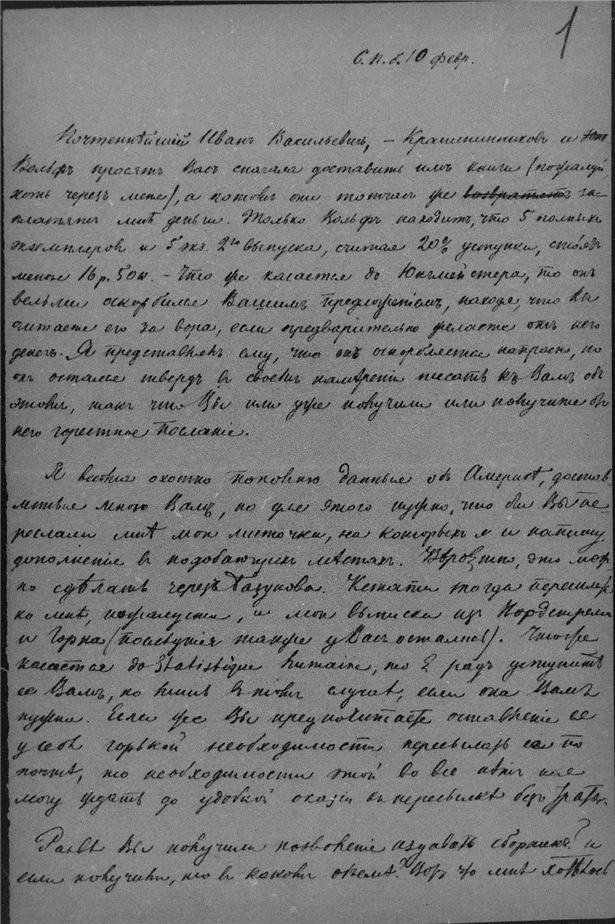 1
С.п.б. 10 февр.
Почтеннѣйшій Иванъ Васильевичъ, – Крашенинниковъ и
Вольфъ просятъ Васъ сначала доставить имъ книги (пожалуй
хоть черезъ меня), а потомъ они тотчасъ же возвратятъ за-
платятъ мнѣ деньги. Только Вольфъ находитъ, что 5 полныхъ
экземпляровъ и 5 экз. 2го выпуска, считая 20% уступки, стоятъ
менѣе 16 р. 50 к. – Что же касается до Юнгмейстера, то онъ
весьма оскорбился Вашимъ предложеніемъ, находя, что Вы
считаете его за вора, если предварительно желаете отъ него
денегъ. Я представлялъ ему, что онъ оскорбляется напрасно, но
онъ остался твердъ в своемъ намѣреніи писать къ Вамъ объ
этомъ, такъ что Вы или уже получили или получите отъ
него горестное посланіе.
Я весьма охотно пополню данные объ Америкѣ, достав-
ленные мною Вамъ, но для этого нужно, что бы Вы пе-
реслали мнѣ мои листочки, на которыхъ я и напишу
дополненіе в подобающихъ мѣстахъ. Вѣроятно, это мож-
но сдѣлать черезъ Базунова. Кстати тогда перешли-
те мнѣ, пожалуйста, и мои выписки изъ
и Горна (послѣднія также у Васъ остались). Что же
касается до Statistique humaine, то я радъ уступить
ее Вамъ, но лишь в томъ случаѣ, если она Вамъ
нужна. Если же Вы предпочитаете оставленіе ее
у себя горькой необходимости пересылать ее по
почтѣ, то необходимости этой во все нѣтъ и я
могу ждать до удобной оказіи къ пересылкѣ безъ
Развѣ Вы получили позволеніе издавать сборникъ? и
если получили, то в какомъ объемѣ? Вотъ что мнѣ хотѣлось